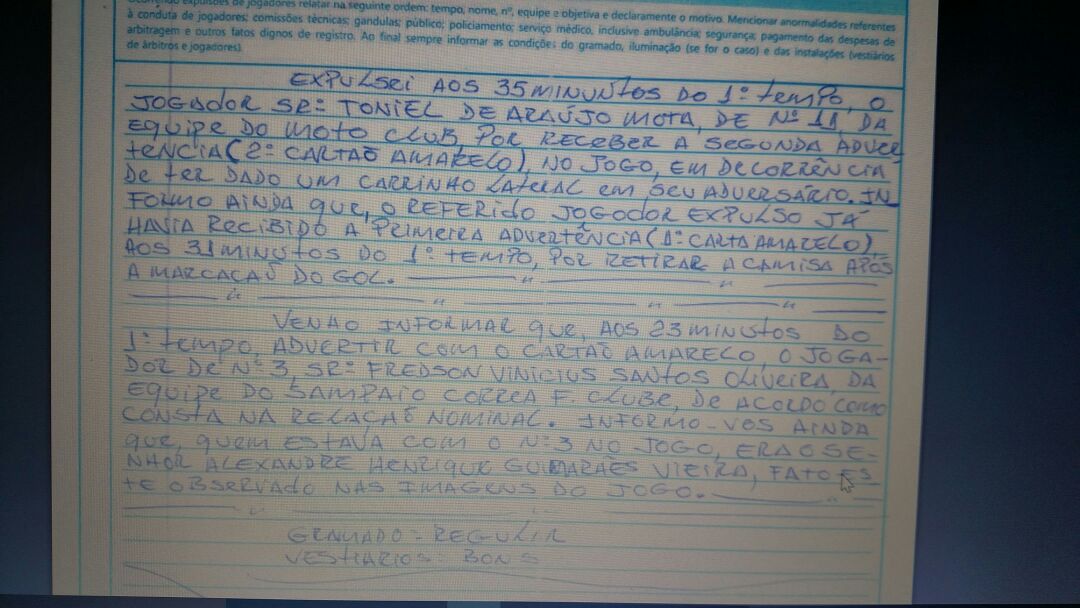 Ocorrendo expulsões de jogadores relatar na seguinte ordem: tempo, nome, nº, equipe e objetiva e declaramente o motivo. Mencionar anormalidades referentes
à conduta de jogadores; comissões técnicas; gandulas; público; policiamento; serviço médico, inclusive ambulância; segurança; pagamento das despesas de
arbitragem e outros fatos dignos de registro. Ao final sempre informar as condições do gramado, iluminação (se for o caso) e das instalações (vestiários
de árbitros e jogadores).
EXPULSEI AOS 35 MINUNTOS DO 1º TEMPO, O
JOGADOR SRº TONIEL DE ARAÚJO MOTA, DE Nº 11, DA
EQUIPE DO MOTO CLUB, POR RECEBER A SEGUNDA ADVER
TÊNCIA (2º CARTAÕ AMARELO), NO JOGO, EM DECORRÊNCIA
DE TER DADO UM CARRINHO LATERAL EM SEU ADVERSÁRIO. IN
FORMO AINDA QUE, O REFERIDO JOGODOR EXPULSO JÁ
HAVIA RECIBIDO A PRIMEIRA ADVERTÊNCIA (1º CARTÃ AMARELO),
AOS 31 MINUTOS DO 1º TEMPO, POR RETIRAR A CAMISA APÓS
A MARCAÇAÕ DO GOL.
VENHO INFORMAR QUE, AOS 23 MINUTOS DO
1º TEMPO, ADVERTIR COM O CARTAÕ AMARELO, O JOGA-
DOR DE Nº 3, SRº FREDSON VINICIUS SANTOS OLIVEIRA, DA
EQUIPE DO SAMPAIO CORREA F. CLUBE, DE ACORDO COMO
CONSTA NA RELAÇAÕ NOMINAL. INFORMO-VOS AINDA
QUE, QUEM ESTAVA COM O Nº 3 NO JOGO, ERA O SE-
NHOR ALEXANDRE HENRIQUE GUIMARÃES VIEIRA, FATO ES
TE OBSERVADO NAS IMAGENS DO JOGO.
GRAMADO - REGULAR
VESTIARIOS - BONS